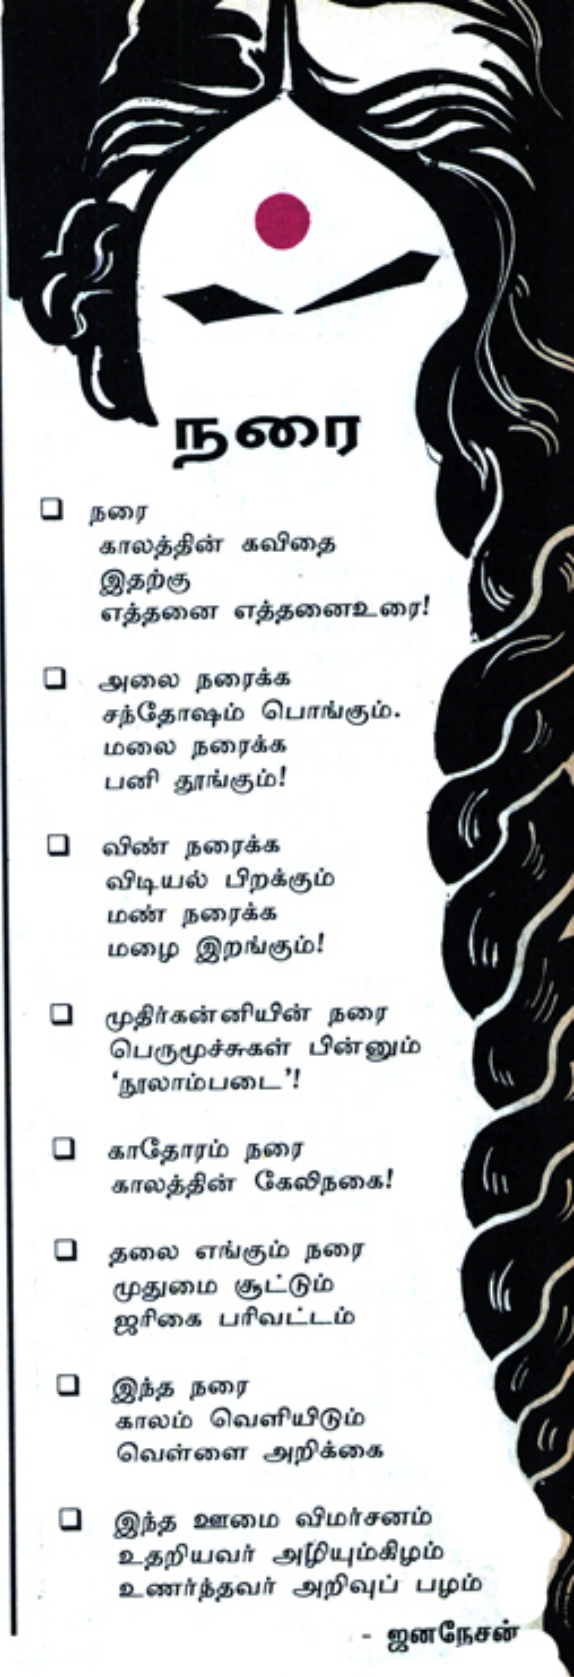 நரை
❑ நரை
காலத்தின் கவிதை
இதற்கு
எத்தனை எத்தனைஉரை!
❑ அலை நரைக்க
சந்தோஷம் பொங்கும்.
மலை நரைக்க
பனி தூங்கும்!
❑ விண் நரைக்க
விடியல் பிறக்கும்
மண் நரைக்க
மழை இறங்கும்!
❑ முதிர்கன்னியின் நரை
பெருமூச்சுகள் பின்னும்
‘நூலாம்படை’!
❑ காதோரம் நரை
காலத்தின் கேலிநகை!
❑ தலை எங்கும் நரை
முதுமை சூட்டும்
ஜரிகை பரிவட்டம்
❑ இந்த நரை
காலம் வெளியிடும்
வெள்ளை அறிக்கை
❑ இந்த ஊமை விமர்சனம்
உதறியவர் அழியும்கிழம்
உணர்ந்தவர் அறிவுப் பழம்
- ஜனநேசன்